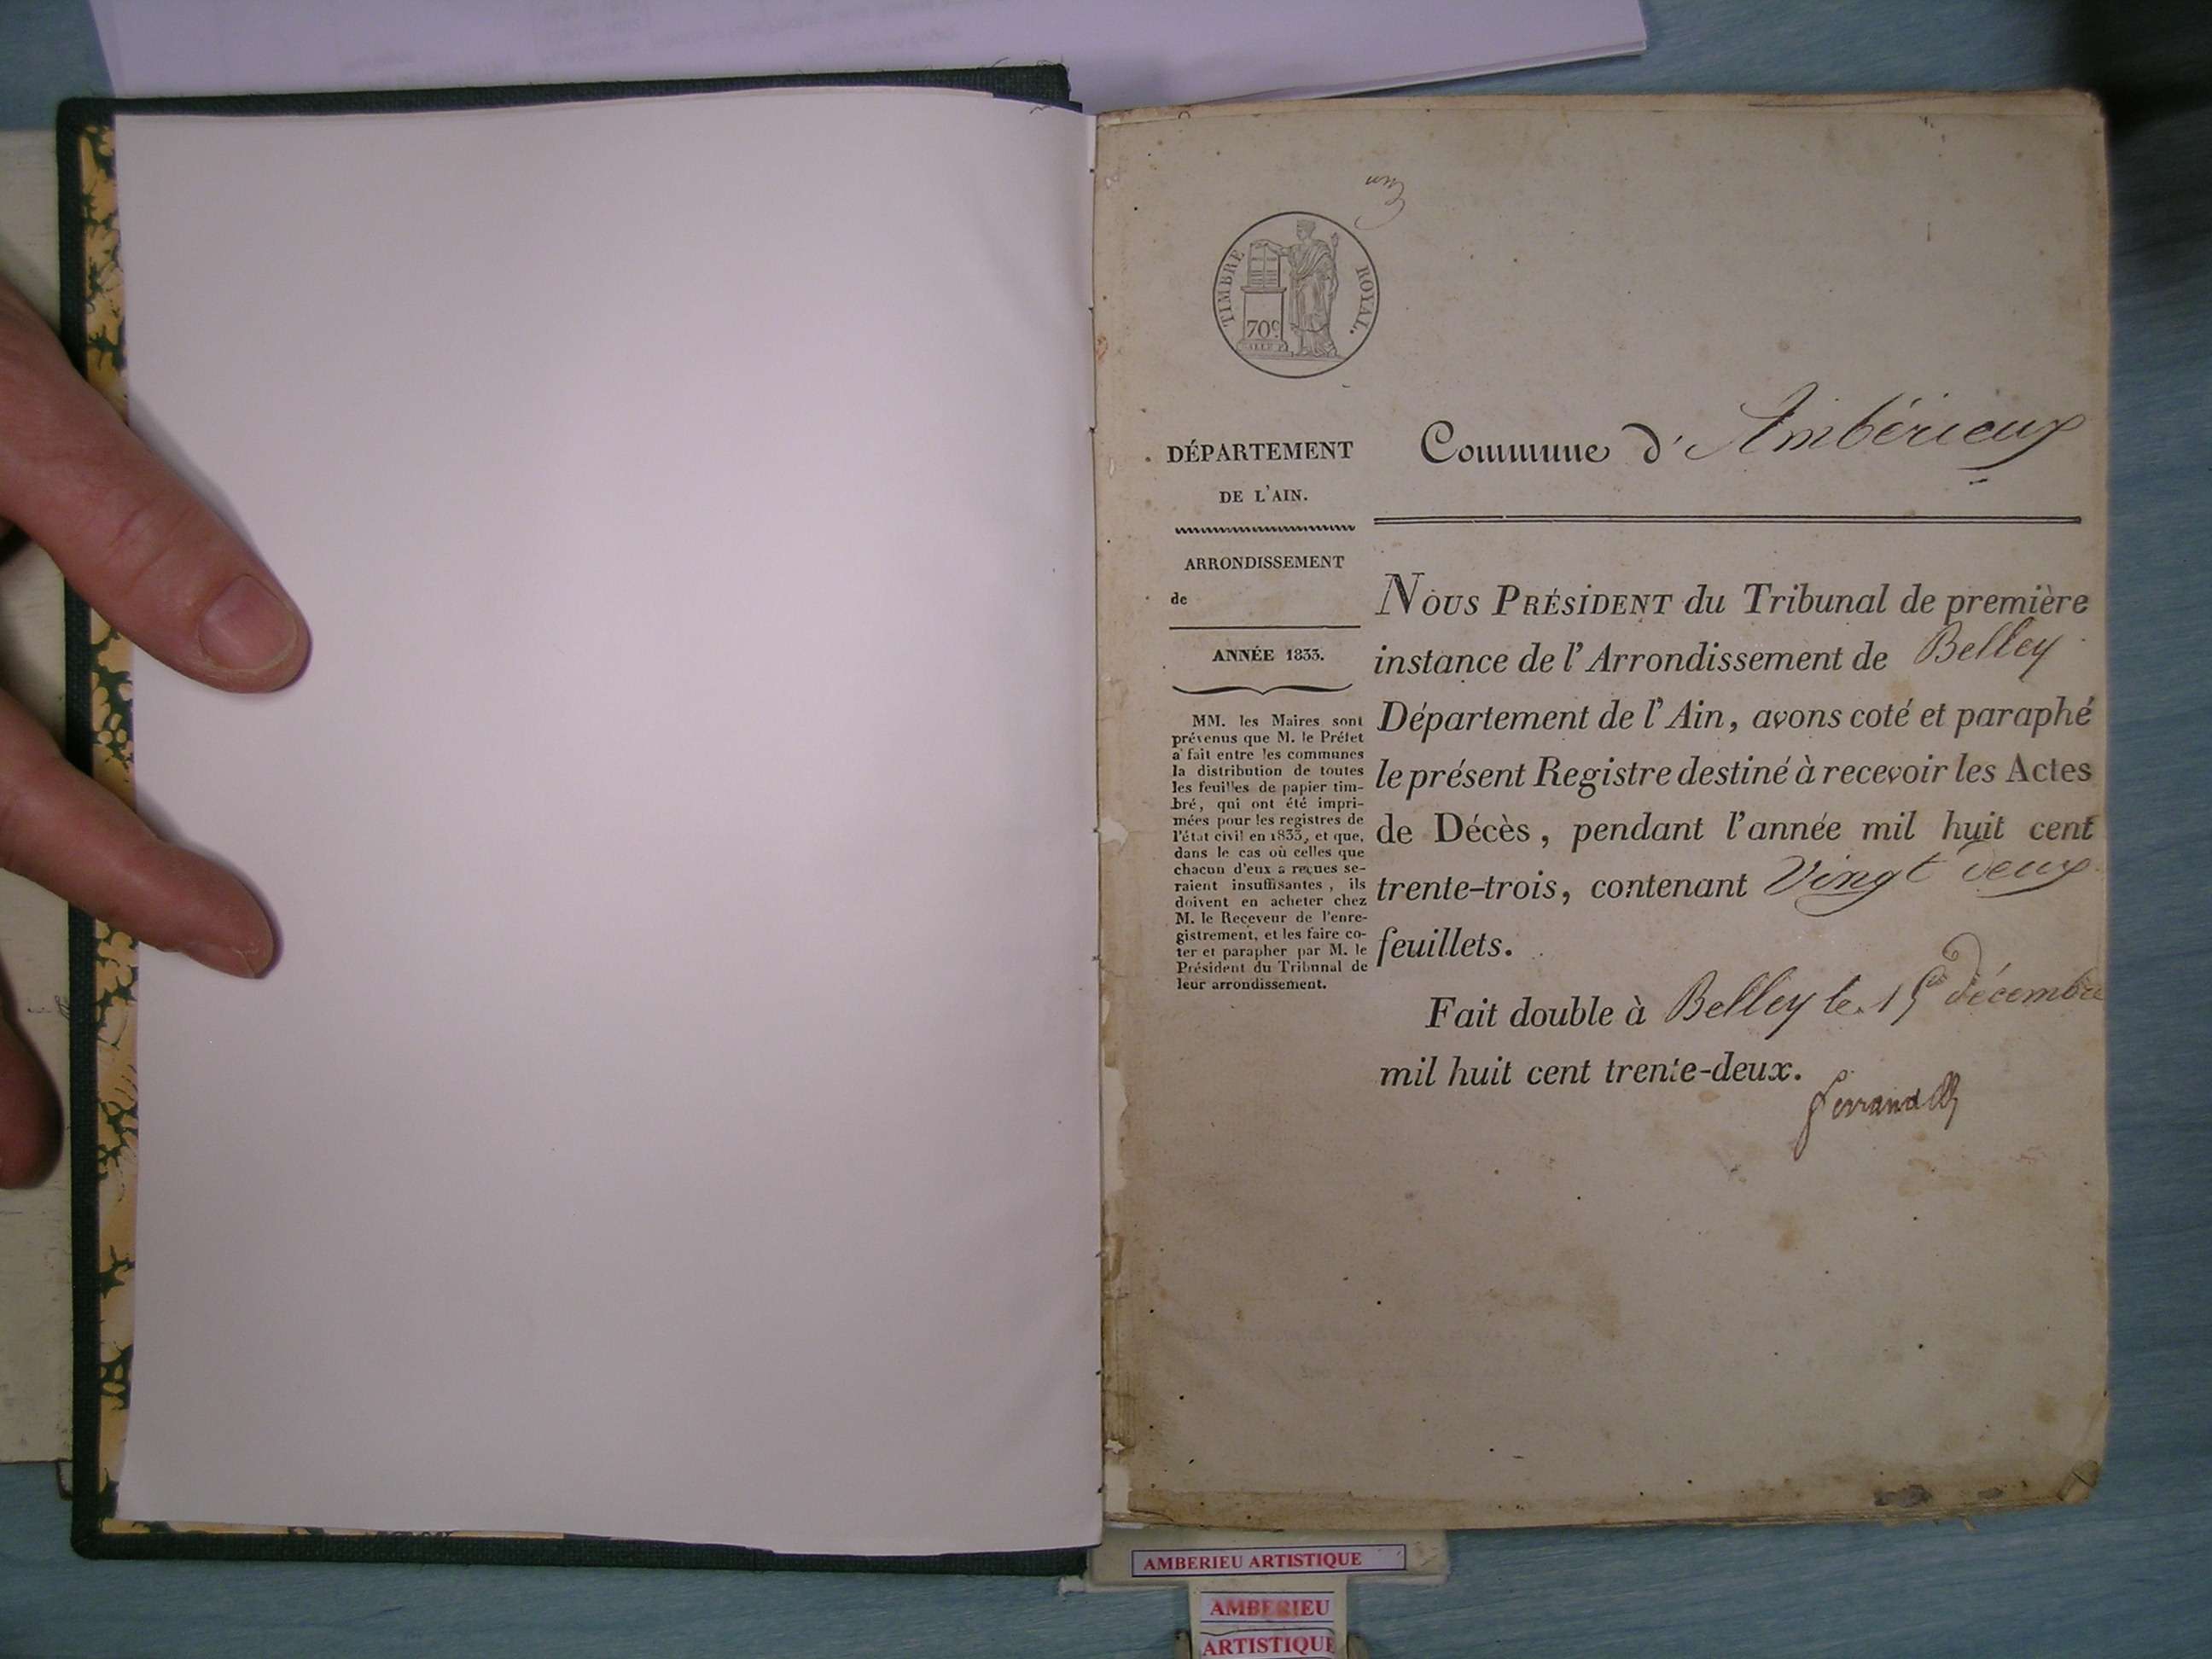 un
TIMBRE ROYAL.
70c
DÉPARTEMENT
DE L'AIN.
ARRONDISSEMENT
de
ANNÉE 1833.
MM. les Maires sont
prévenus que M. le Préfet
a fait entre les communes
la distribution de toutes
les feuilles de papier tim-
bré, qui ont été impri-
mées pour les registres de
l'état civil en 1833, et que,
dans le cas où celles que
chacun d'eux a reçues se-
raient insuffisantes, ils
doivent en acheter chez
M. le Receveur de l'enre-
gistrement, et les faire co-
ter et parapher par M. le
Président du Tribunal de
leur arrondissement.
Commune d'Ambérieux
NOUS PRÉSIDENT du Tribunal de première
instance de l'Arrondissement de Belley
Département de l'Ain, avons coté et paraphé
le présent Registre destiné à recevoir les Actes
de Décès, pendant l'année mil huit cent
trente-trois, contenant Vingt deux
feuillets.
Fait double à Belley le 15 décembre
mil huit cent trente-deux.
Ferrand
AMBERIEU ARTISTIQUE
AMBERIEU
ARTISTIQUE